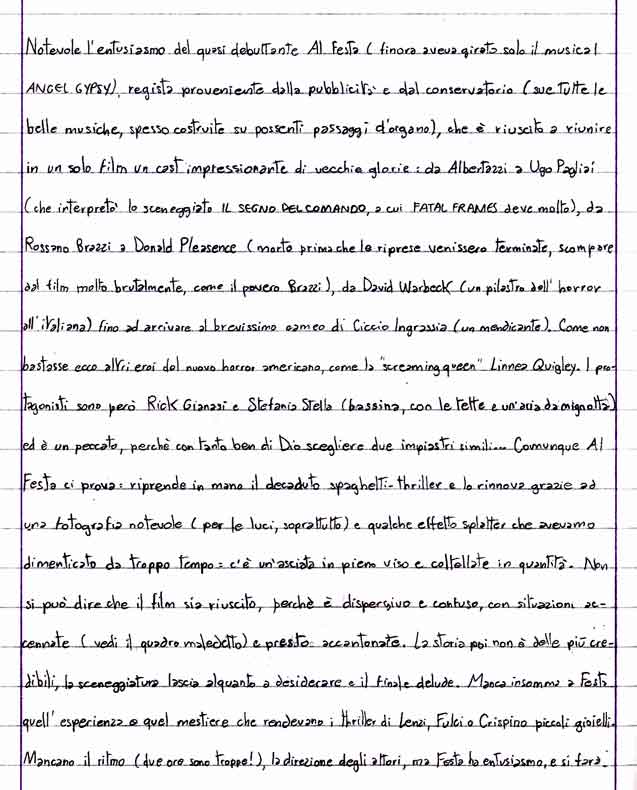 Notevole l'entusiasmo del quasi debuttante Al Festa (finora aveva girato solo il musical
ANGEL GYPSY), regista proveniente dalla pubblicità e dal conservatorio (sue tutte le
belle musiche, spesso costruite su possenti passaggi d'organo), che è riuscito a riunire
in un solo film un cast impressionante di vecchie glorie: da Albertazzi a Ugo Pagliai
(che interpretò lo sceneggiato IL SEGNO DEL COMANDO, a cui FATAL FRAMES deve molto), da
Rossano Brazzi a Donald Pleasence (morto prima che le riprese venissero terminate, scompare
dal film molto brutalmente, come il povero Brazzi), da David Warbeck (un pilastro dell'horror
all'italiana) fino ad arrivare al brevissimo cameo di Ciccio Ingrassia (un mendicante). Come non
bastasse ecco altri eroi del nuovo horror americano, come la "screaming queen" Linnea Quigley. I pro-
tagonisti sono però Rick Gianasi e Stefania Stella (bassina, con le tette e un'aria da mignotta)
ed è un peccato, perchè con tanto ben di Dio scegliere due impiastri simili... Comunque Al
Festa ci prova: riprende in mano il decaduto spaghetti-thriller e lo rinnova grazie ad
una fotografia notevole (per le luci, soprattutto) e qualche effetto splatter che avevamo
dimenticato da troppo tempo: c'è un'asciata in pieno viso e coltellate in quantità. Non
si può dire che il film sia riuscito, perchè è dispersivo e confuso, con situazioni ac-
cennate (vedi il quadro maledetto) e presto accantonate. La storia poi non è delle più cre-
dibili, la sceneggiatura lascia alquanto a desiderare e il finale delude. Manca insomma a Festa
quell'esperienza e quel mestiere che rendevano i thriller di Lenzi, Fulci o Crispino piccoli gioielli.
Mancano il ritmo (due ore sono troppe!), la direzione degli attori, ma Festa ha entusiasmo, e si farà.